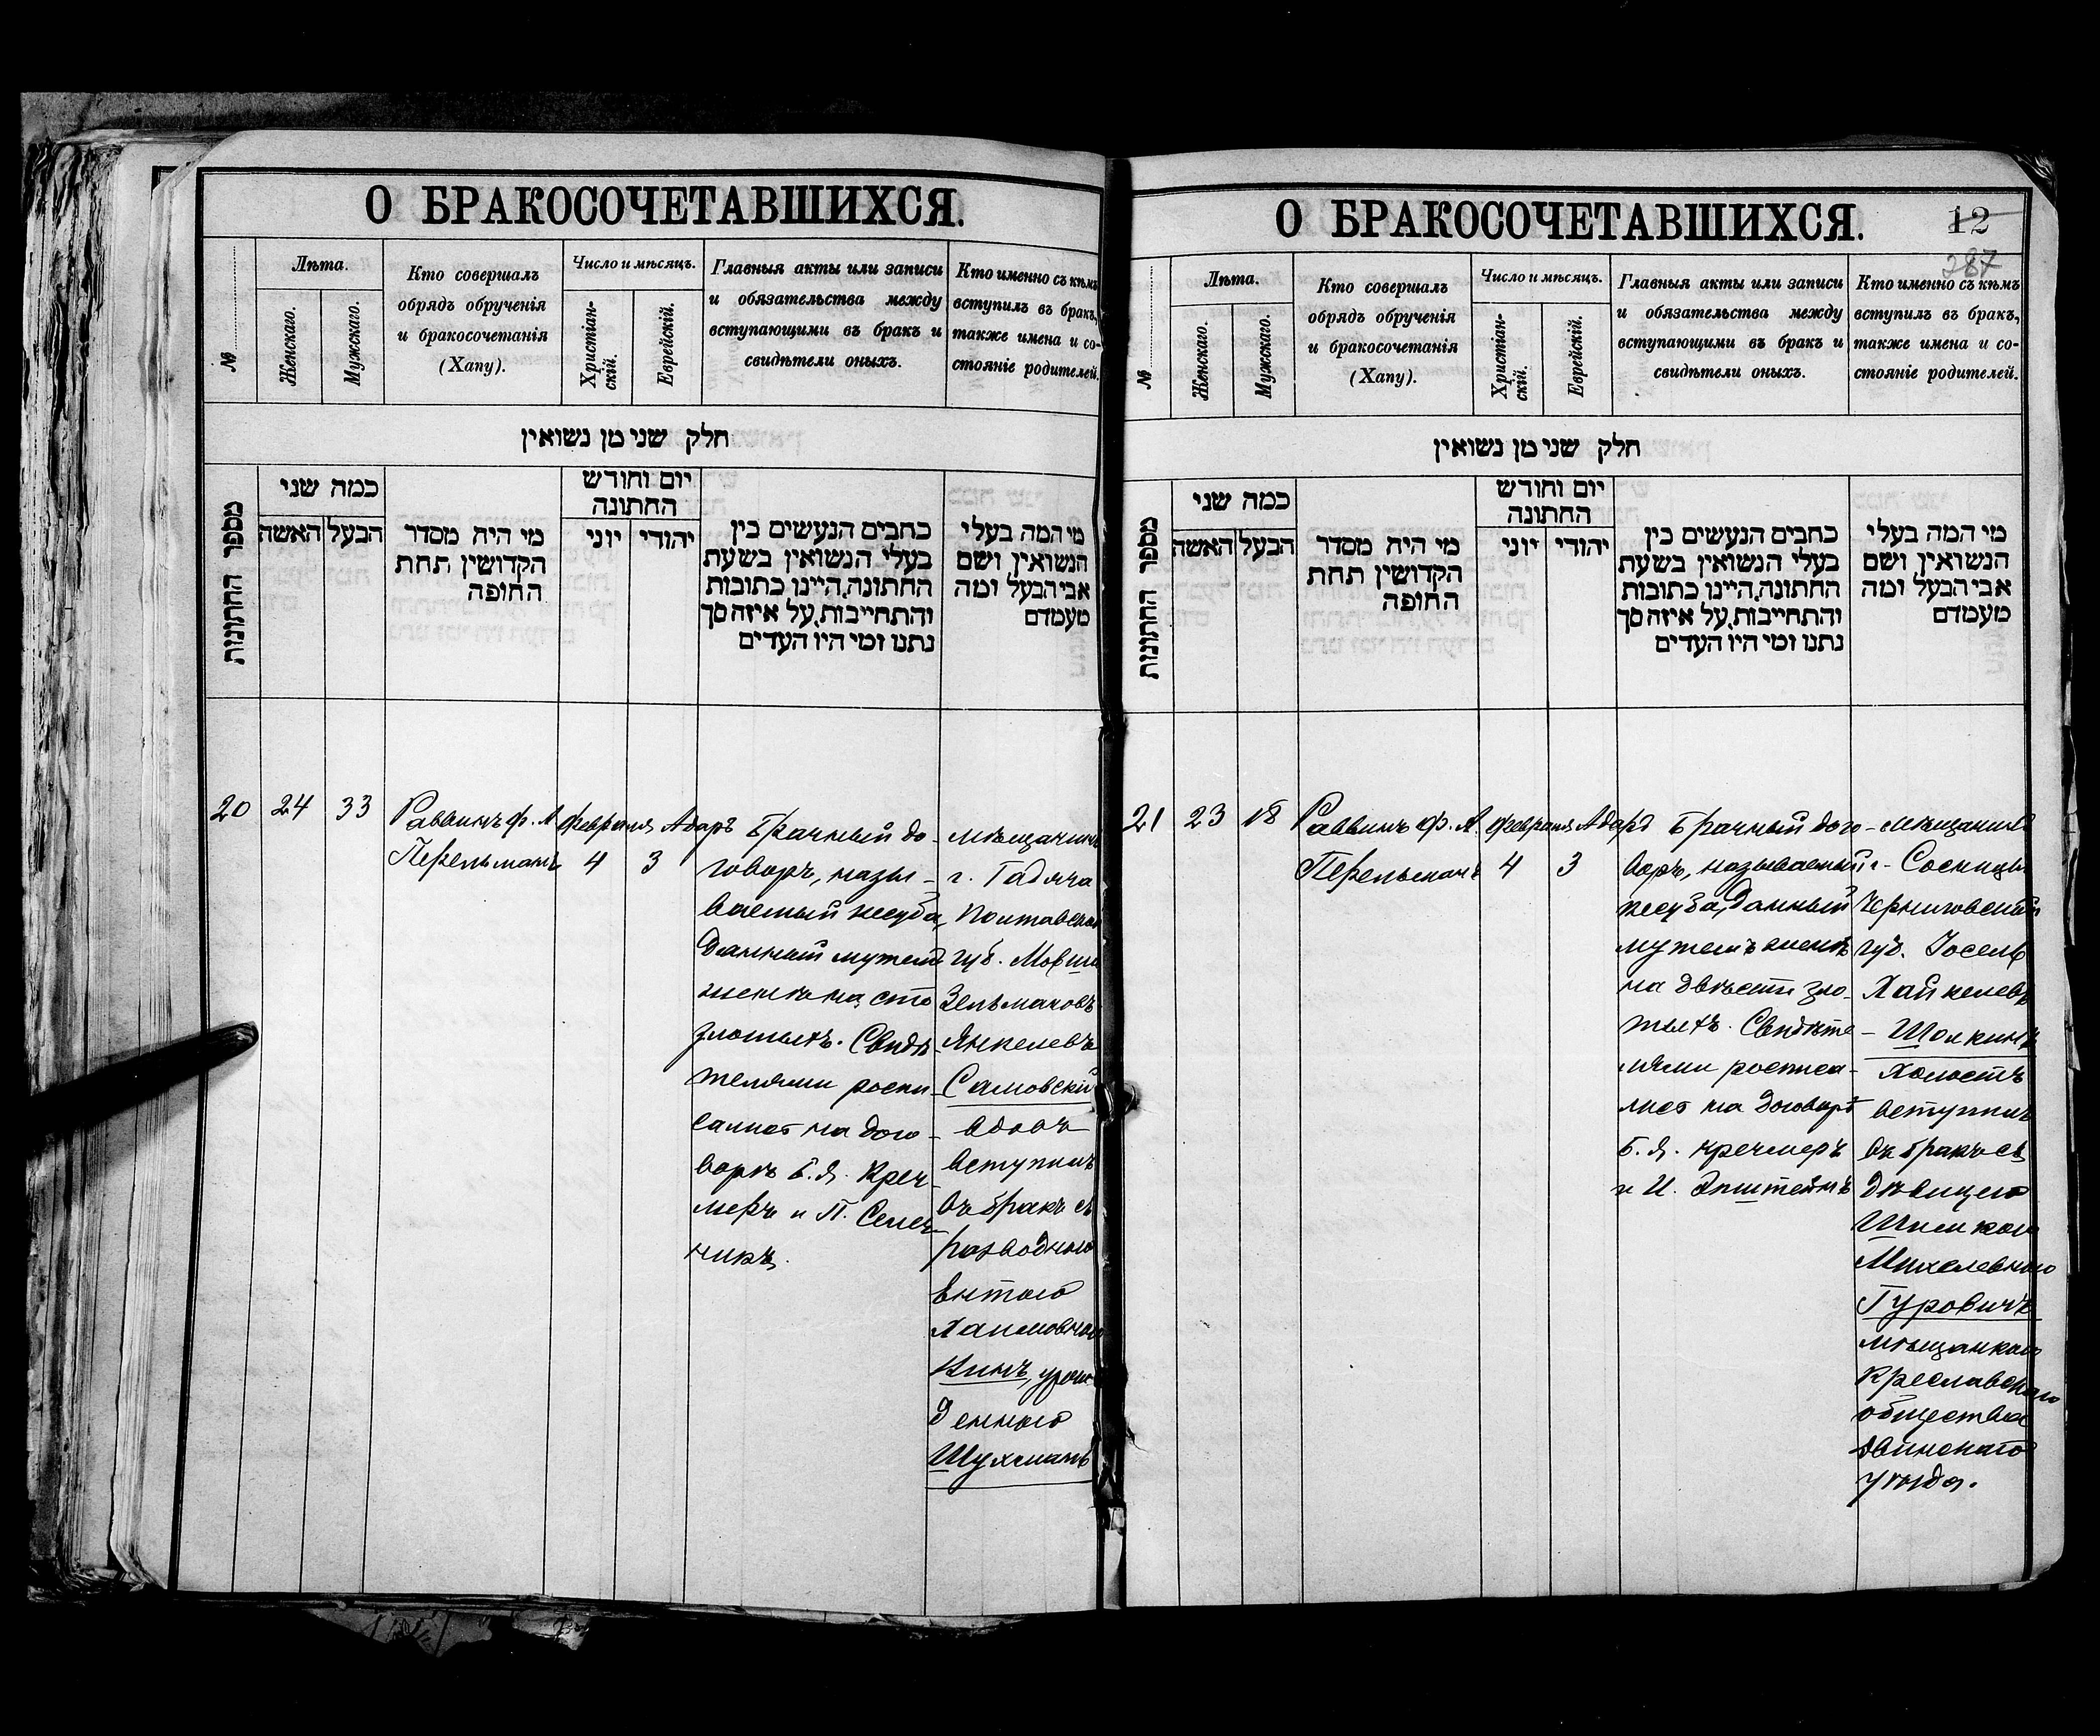 О БРАКОСОЧЕТАВШИХСЯ.
№
Лѣта.
Женскаго.
Мужскаго.
Кто совершалъ
обрядъ обрученія
и бракосочетанія
(Хапу).
Число и мѣсяцъ.
Христіан-
скій.
Еврейскій.
Главныя акты или записи
и обязательства между
вступающими въ бракъ и
свидѣтели оныхъ.
Кто именно съ кѣмъ
вступилъ въ бракъ,
также имена и со-
стояніе родителей.
חלק שני מן נשואין
מספר החתונות
כמה שני
האשה
הבעל
מי היה מסדר
הקדושין תחת
החופה
יום וחורש
החתונה
יוני
יהודי
כחבים הנעשים בין
בעלי הנשואין בשעת
החתונה, היינו כתובות
והתחייבות, על איזה סך
נתנו ומי היו העדים
מי המה בעלי
הנשואין ושם
אבי הבעל ומה
מעמדם
20
24
33
Раввинъ Ф. А
Перельманъ
Февраля
4
Адаръ
3
Брачный до-
говоръ, назы-
ваемый кесуба,
данный мужемъ
женѣ на сто
злотыхъ. Свидѣ-
телями роспи-
сались на дого-
ворѣ Б. Я. Креч-
меръ и П. Селеч-
никъ.
мѣщанинъ
г. Гадяча
Полтавской
губ. Мовша
Зельмановъ-
Янкелевъ
Самовскій
вдовъ
вступилъ
въ бракъ съ
разводною
Витою
Хаимовною
Кинъ, урож-
денною
Шухманъ
О БРАКОСОЧЕТАВШИХСЯ.
12
287
№
Лѣта.
Женскаго.
Мужскаго.
Кто совершалъ
обрядъ обрученія
и бракосочетанія
(Хапу).
Число и мѣсяцъ.
Христіан-
скій.
Еврейскій.
Главныя акты или записи
и обязательства между
вступающими въ бракъ и
свидѣтели оныхъ.
Кто именно съ кѣмъ
вступилъ въ бракъ,
также имена и со-
стояніе родителей.
חלק שני מן נשואין
מספר החתונות
כמה שני
האשה
הבעל
מי היה מסדר
הקדושין תחת
החופה
יום וחורש
החתונה
יוני
יהודי
כחבים הנעשים בין
בעלי הנשואין בשעת
החתונה, היינו כתובות
והתחייבות, על איזה סך
נתנו ומי היו העדים
מי המה בעלי
הנשואין ושם
אבי הבעל ומה
מעמדם
21
23
18
Раввинъ Ф. А.
Перельманъ
Февраля
4
Адаръ
3
Брачный дого-
воръ, называемый
кесуба, данный
мужемъ женѣ
на двѣсти зло-
тыхъ. Свидѣте-
лями росписа-
лись на договорѣ
Б. Я. Кречмеръ
и И. Эпштейнъ
мѣщанинъ
г. Сосницы
Черниговской
губ. Іосель
Хайкелевъ
Шолкинъ
холостъ
вступилъ
въ бракъ съ
дѣвицею
Шимкою
Михелевною
Гуровичъ
мѣщанкою
Креславскаго
общества
Двинскаго
уѣзда.